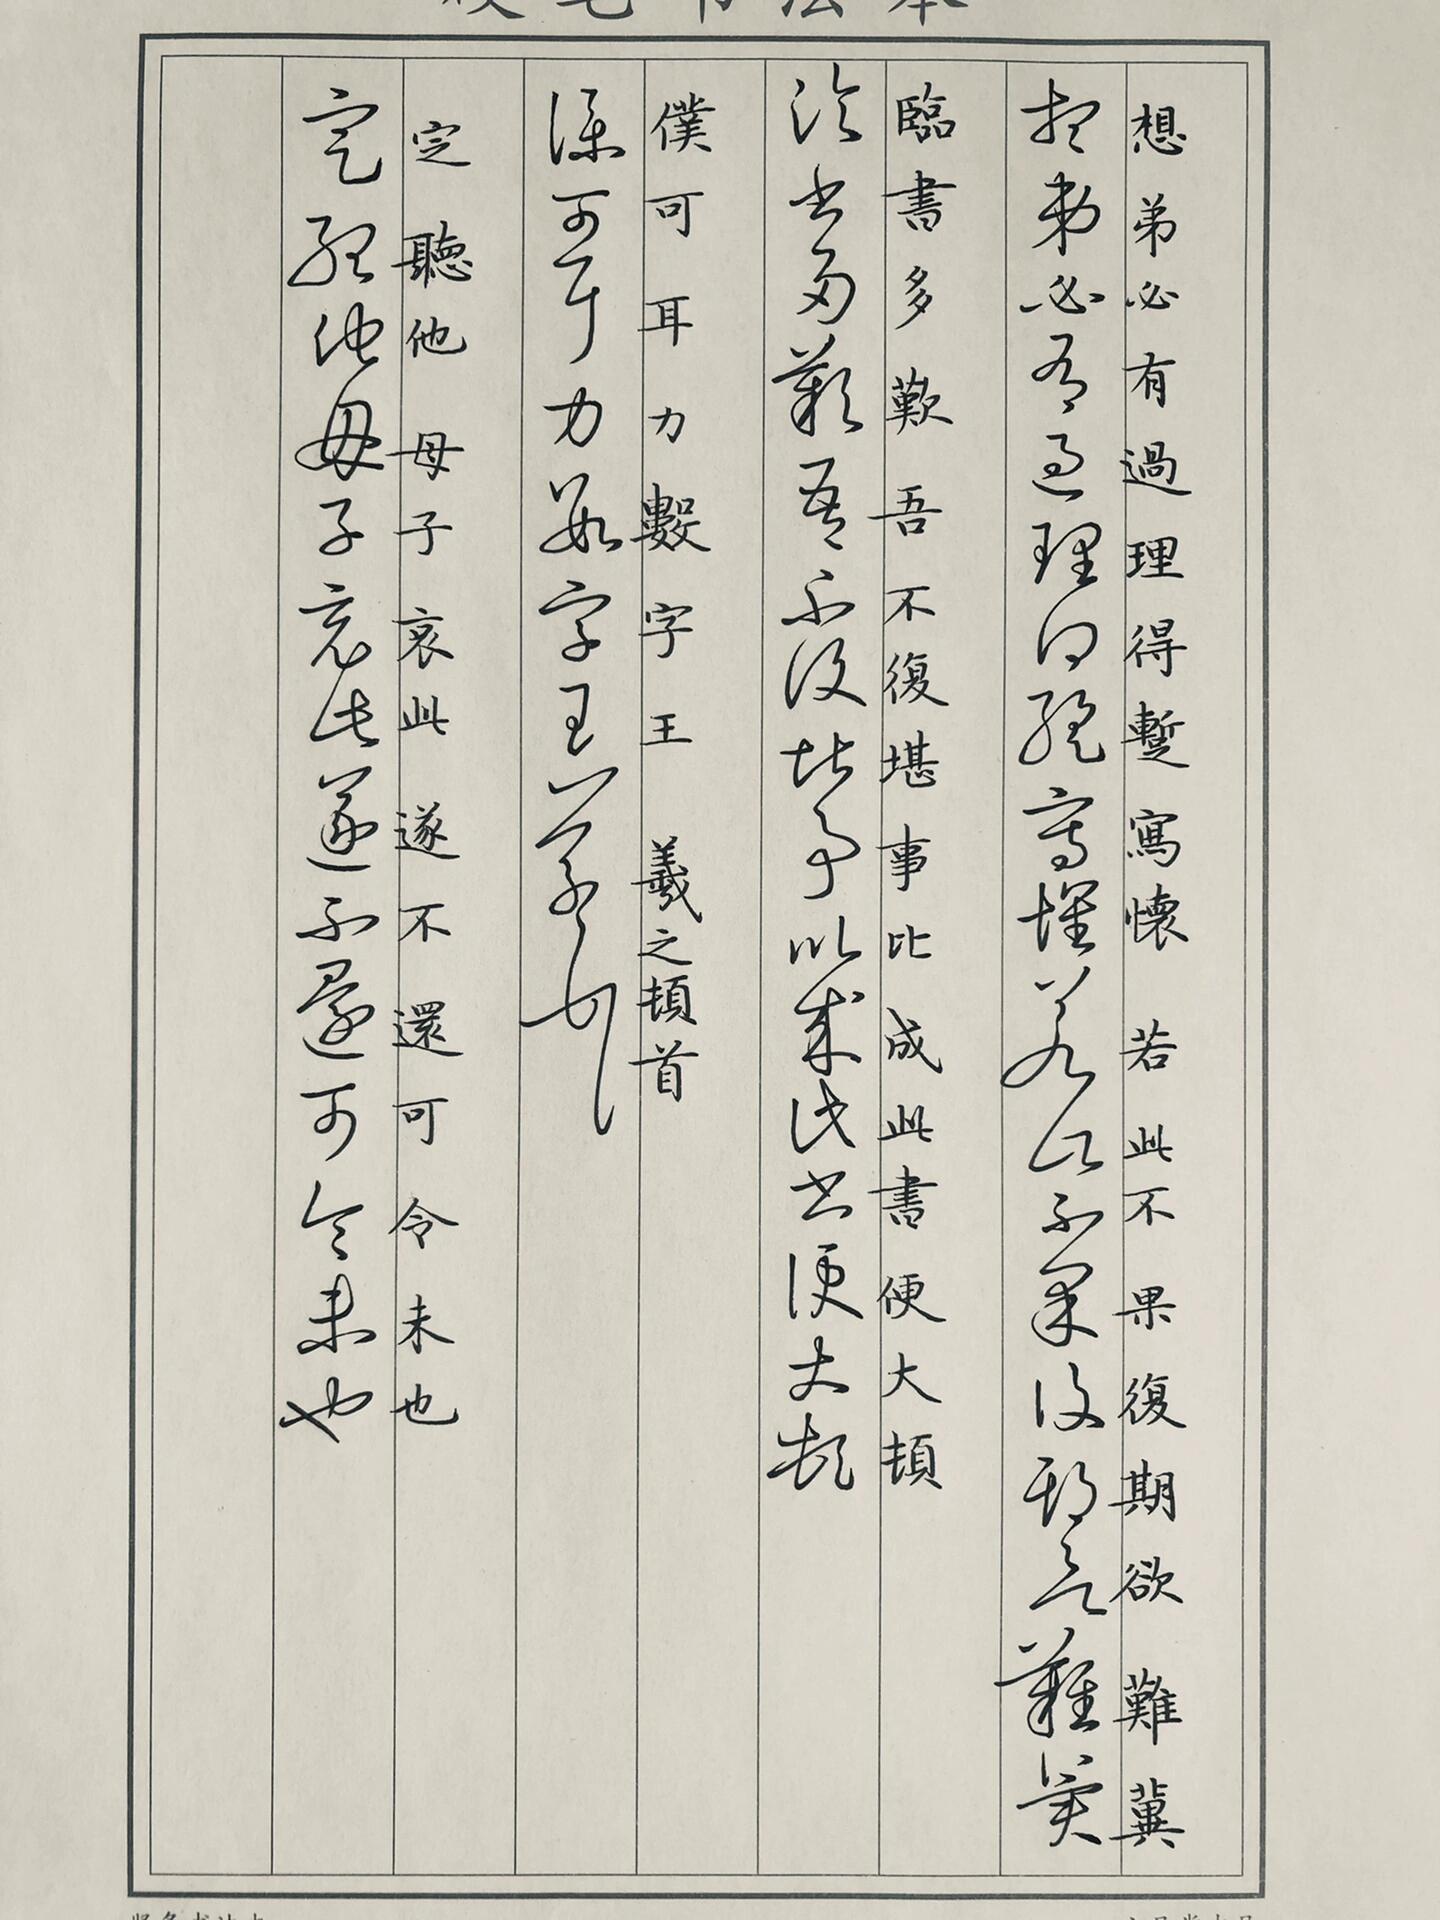 硬笔书法本
想弟必有過理得蹔寫懷若此不果復期欲難冀
想弟必有過理得蹔寫懷若此不果復期欲難冀
臨書多歎吾不復堪事比成此書便大頓
臨書多歎吾不復堪事比成此書便大頓
僕可耳力數字王羲之頓首
僕可耳力數字王羲之頓首
定聽他母子哀此遂不還可令未也
定聽他母子哀此遂不還可令未也